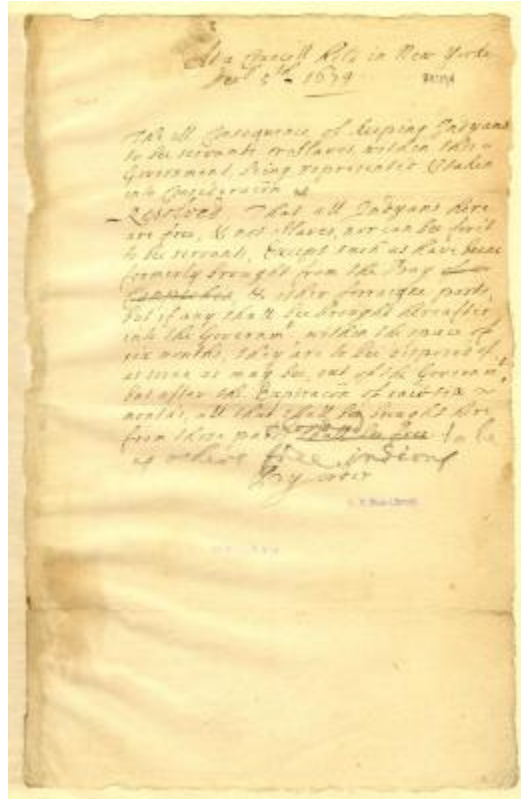 At a Councell held in New Yorke
Dec<sup>r</sup> 5<sup>th</sup> 1679
The ill Consequence of keeping Indyans
to bee servants or slaves, within this
Government, being represented & taken
into Consideracōn
Resolved, That all Indyans here
are free, & not slaves, nor can bee forc't
to bee servants, Except such as have beene
formerly brought from the Bay
Campechio & other forreigne parts,
but if any shall bee brought hereafter
into the Governm<sup>t</sup> within the space of
six months, they are to bee disposed of
as soone as may bee, out of the Governm<sup>t</sup>
but after the Expiracōn of said six
months, all that shall bee brought here
from those parts shall bee free to be
as other free indians
By order